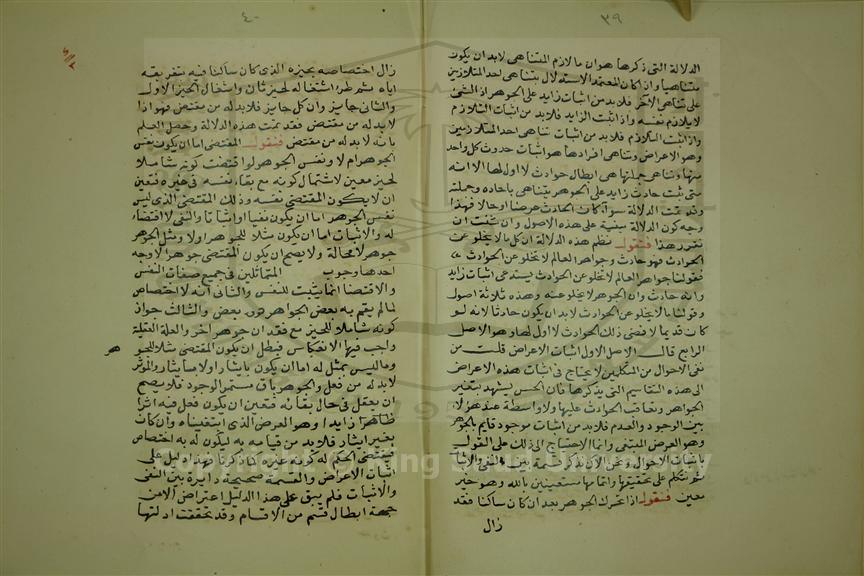 ٣٩
الدلالة التى ذكرها هو ان ما لازم المتناهى لابد ان يكون
متناهيا واذا كان المعتمد الاستدلال بتناهى احد المتلازمين
على تناهى الآخر فلابد من اثبات زايد على الجوهر اذ الشئ
لا يلازم نفسه واذا ثبت الزايد فلابد من اثبات التلازم
واذا ثبت التلازم فلابد من اثبات تناهى احد المتلازمين
وهو الاعراض وتناهى افرادها هو اثبات حدوث كل واحد
منها وتناهى جملتها هى ابطال حوادث لا اول لها الا انه
متى ثبت حادث زايد على الجوهر يتناهى بآحاده وجملته
وقد تمت الدلالة سوآء كان الحادث عرضا او حالا فهذا
وجه كون الدلالة مبنية على هذه الاصول وان شئت ان
تقرر هذا فنقول نظم هذه الدلالة ان كل ما لا يخلو عن
الحوادث فهو حادث وجواهر العالم لا تخلو عن الحوادث
فقولنا جواهر العالم لا تخلو عن الحوادث يستدعى اثبات زايد
وانه حادث وان الجوهر لا يخلو عنه وهذه ثلاثة اصول
وقولنا ما لا يخلو عن الحوادث لابد ان يكون حادثا لانه لو
كان قديما لافضى ذلك الحوادث لا اول لها وهو الاصل
الرابع قال الاصل الاول اثبات الاعراض قلت من
نفى الاحوال من المتكلمين لا يحتاج فى اثبات هذه الاعراض
الى هذه التقاسيم التى يذكرها فان الحس يشهد بتغير
الجواهر وتعاقب الحوادث عليها ولا واسطة عند هؤلاء
بين الوجود والعدم فلابد من اثبات موجود قايم بالجوهر
وهو العرض المبتغى وانما الاحتياج الى ذلك على القول
باثبات الاحوال ونحن الآن نذكر قسمة بين النفى والاثبات
ثم نتكلم على تحقيقها واتمامها مستعينين بالله وهو خير
معين فنقول اذا تحرك الجوهر بعد ان كان ساكنا فقد
زال
٤٠
زال اختصاصه بحيزه الذى كان ساكنا فيه بتفريقه
اياه ثم طرا اشتغاله لحيز ثان واشغال الحيز الاول
والثانى جايز وان كل جايز فلابد له من مقتض فهو اذا
لابد له من مقتض فقد تمت هذه الدلالة وحصل العلم
بانه لابد له من مقتض فنقول المقتضى اما ان يكون نفس
الجوهر ام لا ونفس الجوهر لو اقتضت كونه شاملا
لحيز معين لاشتمال كونه مع بقاء نفسه فى حيزه فتعين
ان لا يكون المقتضى نفسه وذلك المقتضى الذى ليس
نفس الجوهر اما ان يكون نفيا او اثباتا والنفى لا اقتضاء
له والاثبات اما ان يكون مثلا للجوهر اولا ومثل الجوهر
جوهر لا محالة ولا يصح ان يكون المقتضى جوهرا لاوجه
احدها وجوب المتماثلين فى جميع صفات النفس
والاقتضا انما يثبت للنفس والثانى انه لا اختصاص
لما لم يقم به بعض الجواهر دون بعض والثالث جواز
كونه شاملا للحيز مع فقدان جوهر آخر والعلة العقلية
واجب فيها الانعكاس فبطل ان يكون المقتضى مثلا للجو
هر
وما ليس بمثل له اما ان يكون بايثار اولا مبايثار والموثر
لابد له من فعل والجوهر باق مستمر الوجود فلا يصح
ان يعقل فى حال بقائه فتعين ان يكون فعل فيه اثرا
ظاهرا زايدا وهو العرض الذى ابتغيناه وان كان
بغير ايثار فلابد من قيامه به ليكون له به اختصاص
فيقتضى الحكم له كونه عنيره كان كونا فهذا دليل على
اثبات الاعراض والقسمة صحيحة دايرة بين النفى
والاثبات فلم يبق على هذا الدليل اعتراض الا من
جهة ابطال قسم من الاقسام وقد تحققت ادلتها
copyright © King Saud University